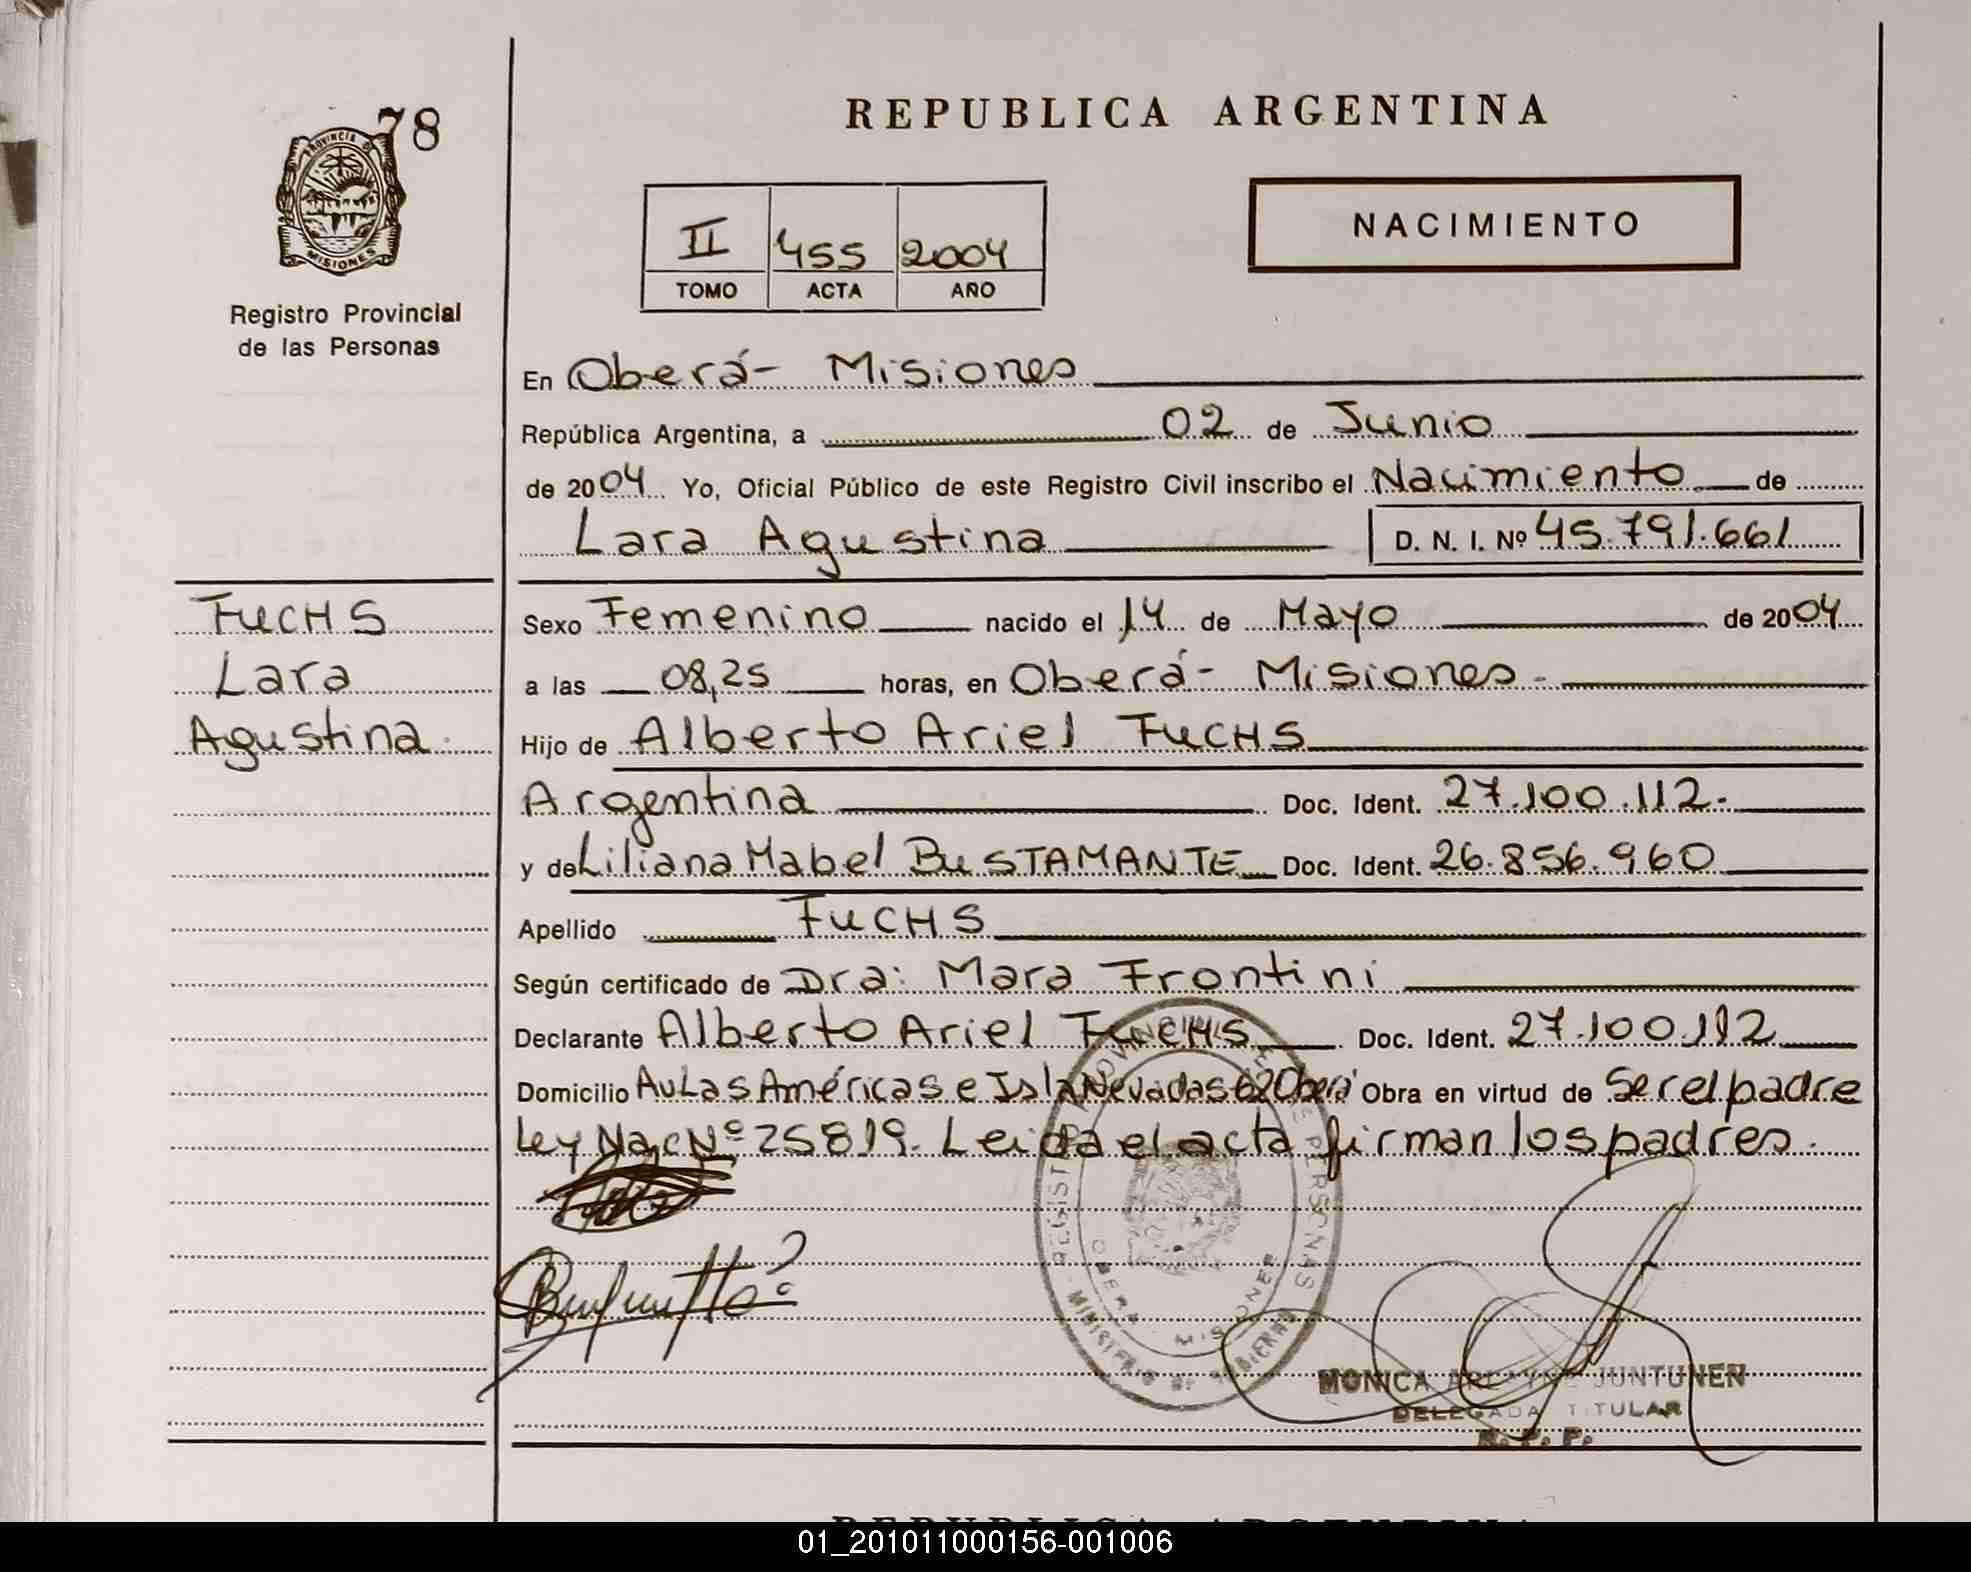 78
PROVINCIA DE
MISIONES
Registro Provincial
de las Personas
REPUBLICA ARGENTINA
II 455 2004
TOMO ACTA AÑO
NACIMIENTO
En Oberá- Misiones
República Argentina, a 02 de Junio
de 2004 Yo, Oficial Público de este Registro Civil inscribo el Nacimiento de
Lara Agustina D. N. I. Nº 45.791.661
FUCHS
Lara
Agustina.
Sexo Femenino nacido el 14 de Mayo de 2004
a las 08,25 horas, en Oberá- Misiones-
Hijo de Alberto Ariel FUCHS
Argentina Doc. Ident. 27.100.112.
y de Liliana Mabel BUSTAMANTE Doc. Ident. 26.856.960
Apellido FUCHS
Según certificado de Dra: Mara Frontini
Declarante Alberto Ariel FUCHS Doc. Ident. 27.100.112
Domicilio Av Las Américas e Isla Nevadas 62 Oberá Obra en virtud de Ser el padre
Ley Nac Nº 25819. Leida el acta firman los padres.
MONICA JUNTUNEN
DELEGADA TITULAR
R. P. P.
REPUBLICA ARGENTINA
01_201011000156-001006